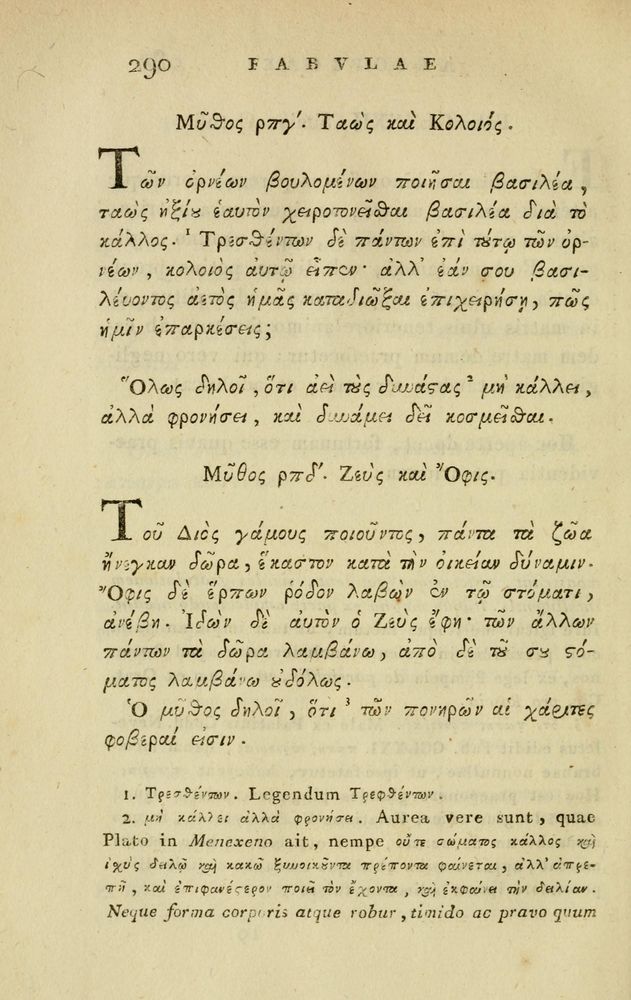 290 FABVLAE
Μῦθος ρπγ′. Ταὼς καὶ Κολοιός.
Τῶν ὀρνέων βουλομένων ποιῆσαι βασιλέα,
ταὼς ἠξίȣ ἑαυτὸν χειροτονεῖσθαι βασιλέα διὰ τὸ
κάλλος. ¹ Τρεσθέντων δὲ πάντων ἐπὶ τȣ́τῳ τῶν ὀρ-
νέων, κολοιὸς αὐτῷ εἶπεν· ἀλλ' ἐάν σου βασι-
λέυοντος ἀετὸς ἡμᾶς καταδιῶξαι ἐπιχειρήσῃ, πῶς
ἡμῖν ἐπαρκέσεις;
Ὅλως δηλοῖ, ὅτι ἀεὶ τȣ̀ς δυνάϛας ² μὴ κάλλει,
ἀλλὰ φρονήσει, καὶ δυνάμει δεῖ κοσμεῖσθαι.
Μῦθος ρπδ′. Ζεὺς καὶ Ὄφις.
Τοῦ Διὸς γάμους ποιοῦντος, πάντα τὰ ζῶα
ἤνεγκαν δῶρα, ἕκαστον κατὰ τὴν οἰκείαν δύναμιν.
Ὄφις δὲ ἕρπων ῥόδον λαβὼν ἐν τῷ στόματι,
ἀνέβη. Ἰδὼν δὲ αὐτὸν ὁ Ζεὺς ἔφη· τῶν ἄλλων
πάντων τὰ δῶρα λαμβάνω, ἀπὸ δὲ τȣ͂ σȣ ϛό-
ματος λαμβάνω ȣ̓δόλως.
Ὁ μῦθος δηλοῖ, ὅτι ³ τῶν πονηρῶν αἱ χάριτες
φοβεραί εἰσιν.
1. Τρεσθέντων. Legendum Τρεφθέντων.
2. μὴ κάλλει ἀλλὰ φρονήσει. Aurea vere sunt, quae
Plato in Menexeno ait, nempe οὔτε σώματος κάλλος καὶ
ἰχὺς δειλῷ καὶ κακῷ ξυνοικȣ͂ντα πρέποντα φαίνεται, ἀλλ' ἀπρε-
πῆ, καὶ ἐπιφανέϛερον ποιεῖ τὸν ἔχοντα, καὶ ἐκφαίνει τὴν δειλίαν.
Neque forma corporis atque robur, timido ac pravo quum